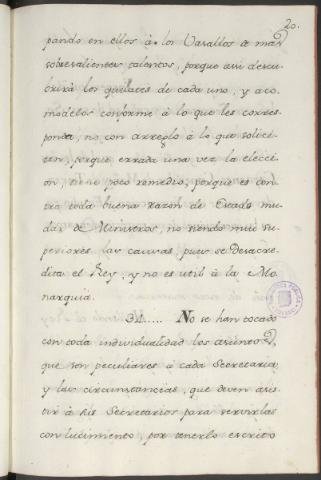 20.
pando en ellos à los Vasallos de mas
sobresalientes talentos, porque asi descu-
brirà los quilates de cada uno, y aco-
modelos conforme à lo que les corres-
ponda, no con arreglo à lo que solici-
ten, porque errada una vez la elec̃cion
, tiene poco remedio, porque es con-
tra toda buena razon de Estado mu-
dar de Ministros, no siendo muy su-
periores las causas, pues se desacre-
dita el Rey, y no es util à la Mo-
narquia.
31..... No se han tocado
con toda individualidad los asuntos,
que son peculiares à cada Secretaria,
y las circunstancias, que deven asis-
tir à sus Secretarios para servirlas
con lucimiento, por tenerlo escrito